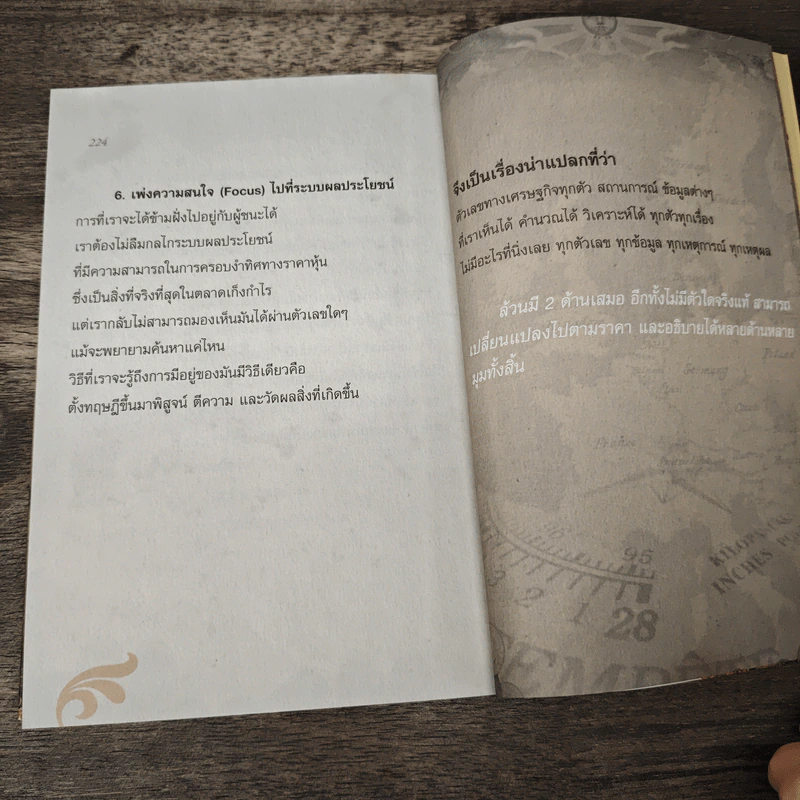 224
6. เพ่งความสนใจ (Focus) ไปที่ระบบผลประโยชน์
การที่เราจะได้ข้ามฝั่งไปอยู่กับผู้ชนะได้
เราต้องไม่ลืมกลไกระบบผลประโยชน์
ที่มีความสามารถในการครอบงำทิศทางราคาหุ้น
ซึ่งเป็นสิ่งที่จริงที่สุดในตลาดเก็งกำไร
แต่เรากลับไม่สามารถมองเห็นมันได้ผ่านตัวเลขใดๆ
แม้จะพยายามค้นหาแค่ไหน
วิธีที่เราจะรู้ถึงการมีอยู่ของมันมีวิธีเดียวคือ
ตั้งทฤษฎีขึ้นมาพิสูจน์ ตีความ และวัดผลสิ่งที่เกิดขึ้น
จึงเป็นเรื่องน่าแปลกที่ว่า
ตัวเลขทางเศรษฐกิจทุกตัว สถานการณ์ ข้อมูลต่างๆ
ที่เราเห็นได้ คำนวณได้ วิเคราะห์ได้ ทุกตัวทุกเรื่อง
ไม่มีอะไรที่นิ่งเลย ทุกตัวเลข ทุกข้อมูล ทุกเหตุการณ์ ทุกเหตุผล
ล้วนมี 2 ด้านเสมอ อีกทั้งไม่มีตัวใดจริงแท้ สามารถ
เปลี่ยนแปลงไปตามราคา และอธิบายได้หลายด้านหลาย
มุมทั้งสิ้น
95
3 2 1 28
INCHES